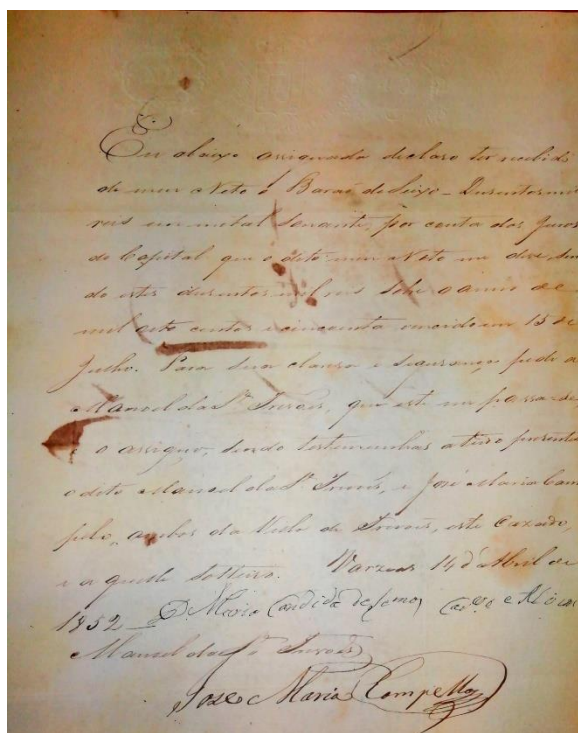 Eu abaixo assignada declaro ter recebido
de meu Neto o Barão de Seixo - Duzentos mil
reis em metal sonante, por conta dos juros
do Capital, que o dito meu Neto me deve, sen
do estes duzentos mil reis sobre o anno de
mil oito centos e cincoenta vencido em 15 de
Julho. Para sua clareza e segurança pedi a
Manoel da S.ª Trovoes, que este me passa-se
o assigno, sendo testemunhas a tudo presente
o dito Manoel da S.ª Trovoes, e José Maria Cam
pelo, ambos da Villa de Trovoes, este Cazado,
e aquelle Solteiro. Varzeas 14 d'Abril de
1852 D. Maria Candida de Lemos
Manoel da S.ª Trovoes
Jose Maria Campello